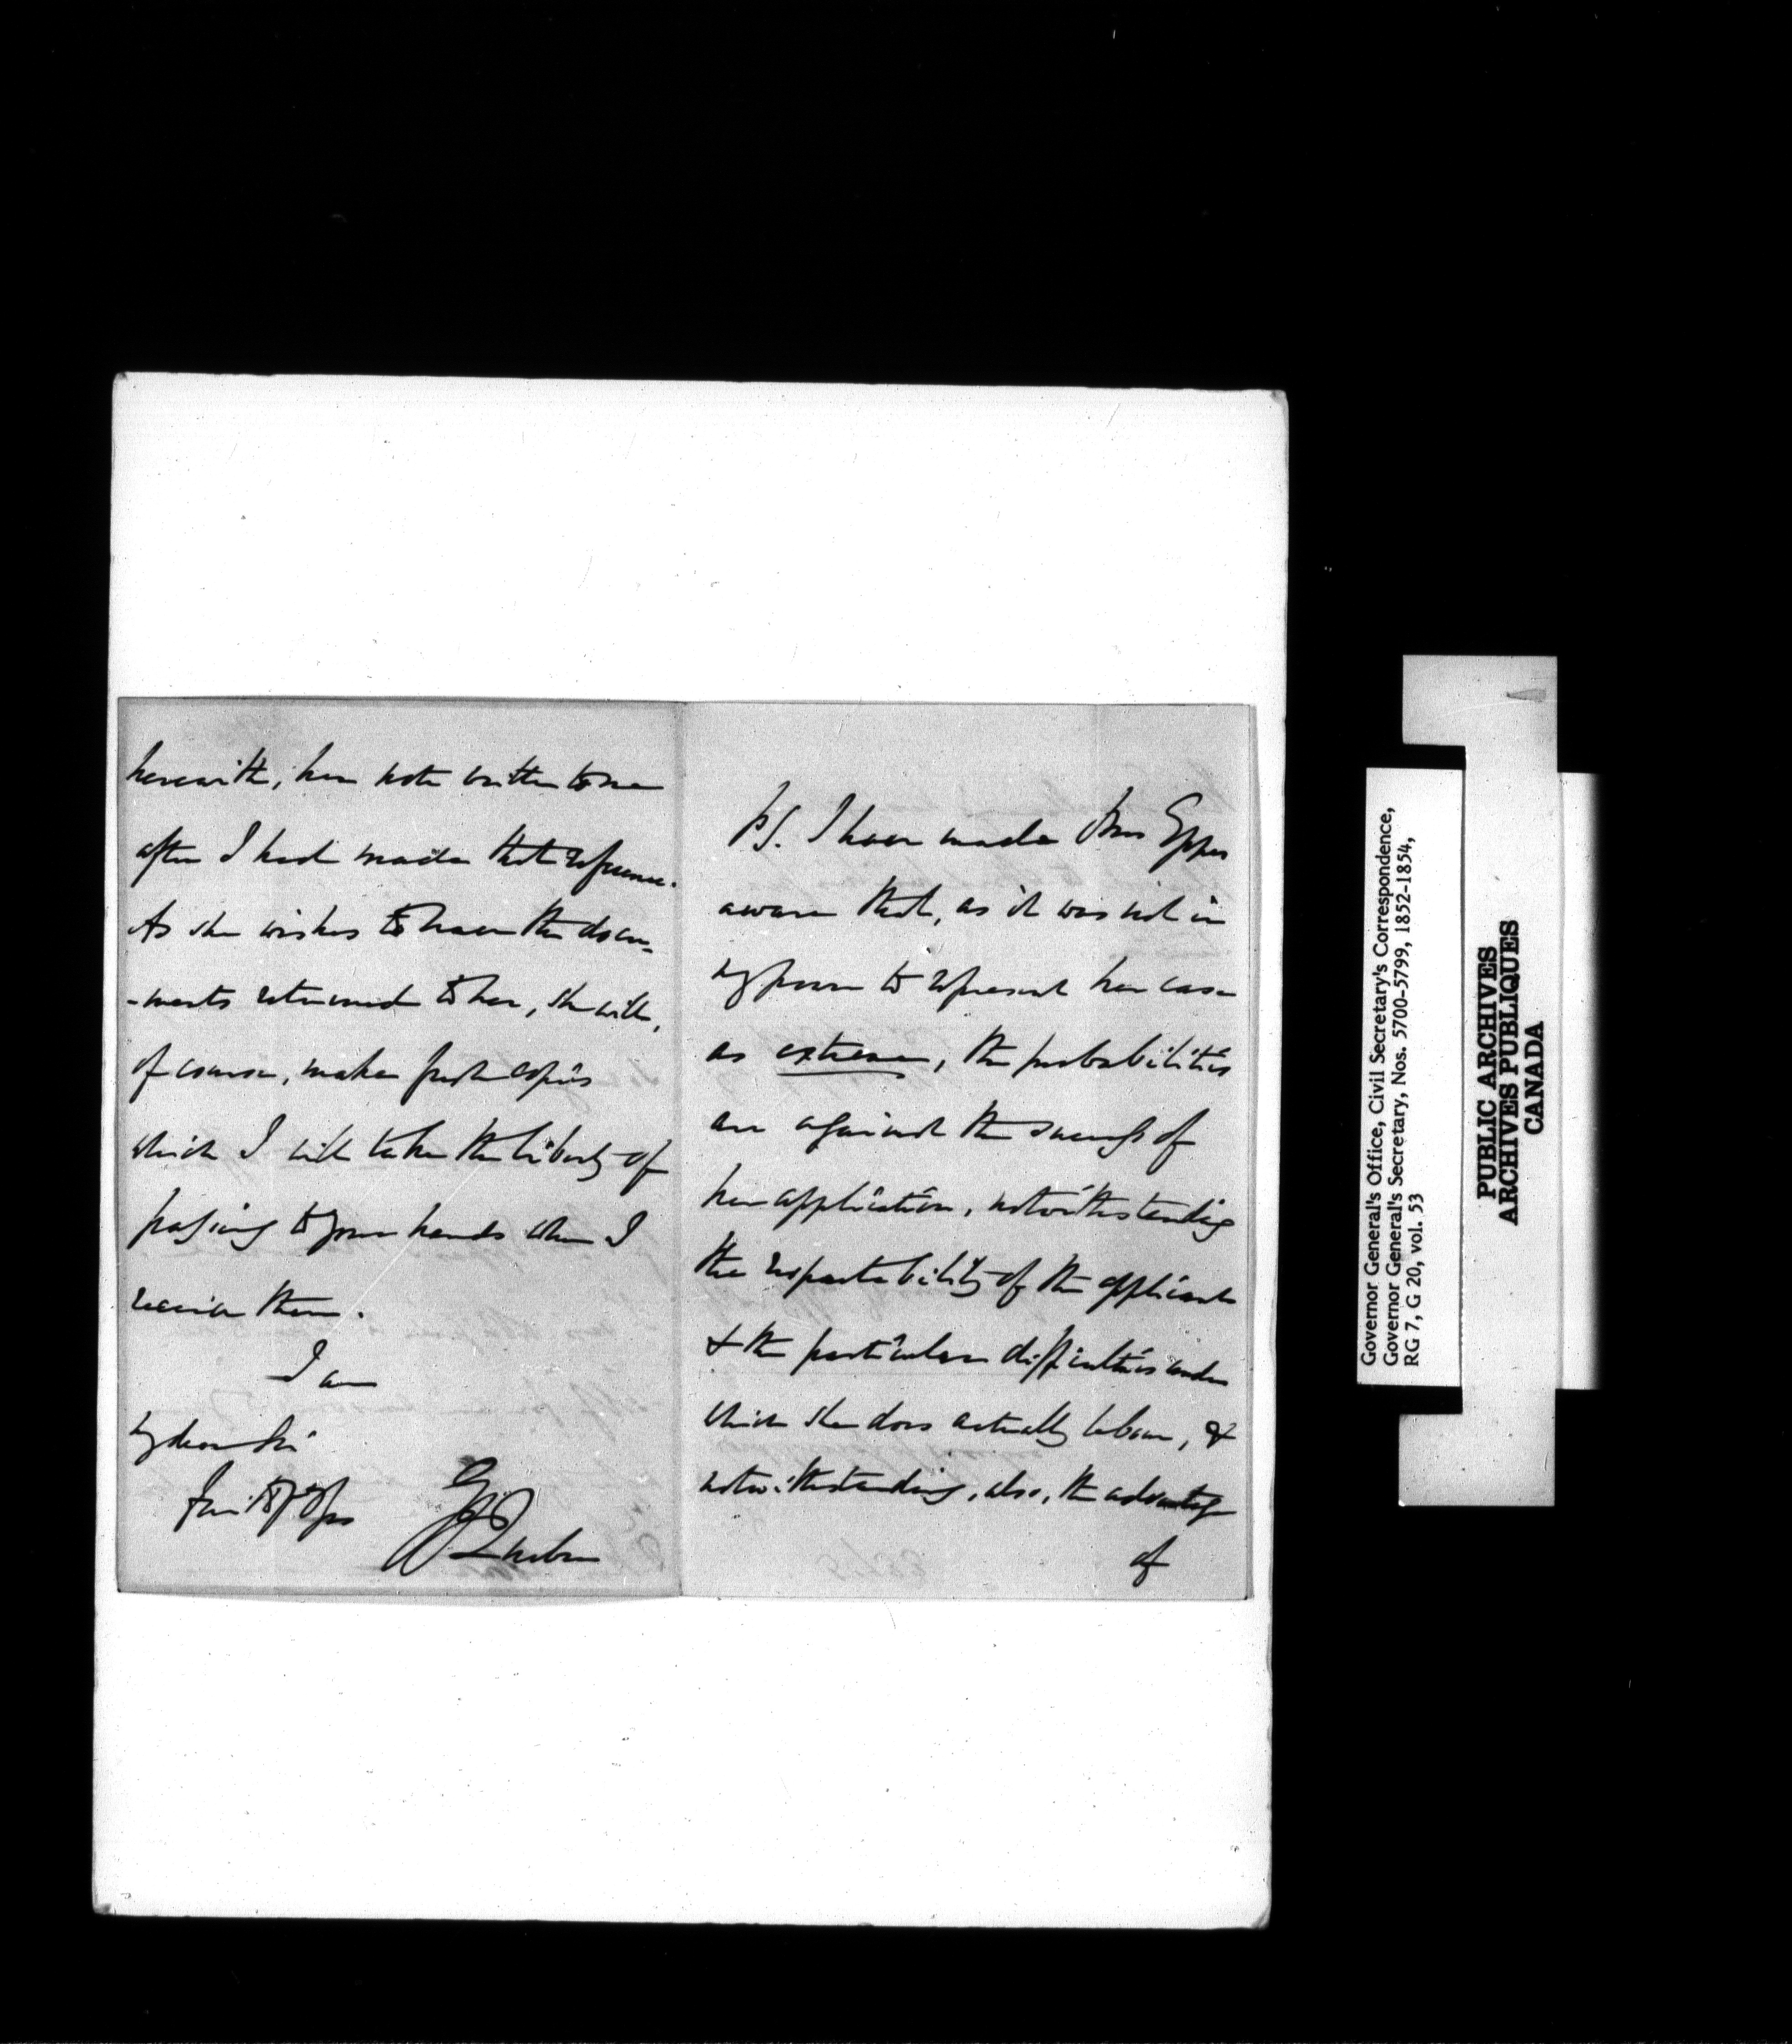 herewith, her note written to me
after I had made that reference.
As she wishes to have the docu-
-ments returned to her, she will,
of course, make fresh copies
which I will take the liberty of
passing to your hands when I
receive them.
I am
My dear Sir
G J Quebec
PS. I have made Mrs Eppes
aware that, as it was not in
my power to represent her case
as extreme, the probabilities
are against the success of
her application, notwithstanding
the respectability of the applicant
& the particular difficulties under
which she does actually labour, &
notwithstanding, also, the advantage
of
Governor General's Office, Civil Secretary's Correspondence,
Governor General's Secretary, Nos. 5700-5799, 1852-1854,
RG 7, G 20, vol. 53
PUBLIC ARCHIVES
ARCHIVES PUBLIQUES
CANADA